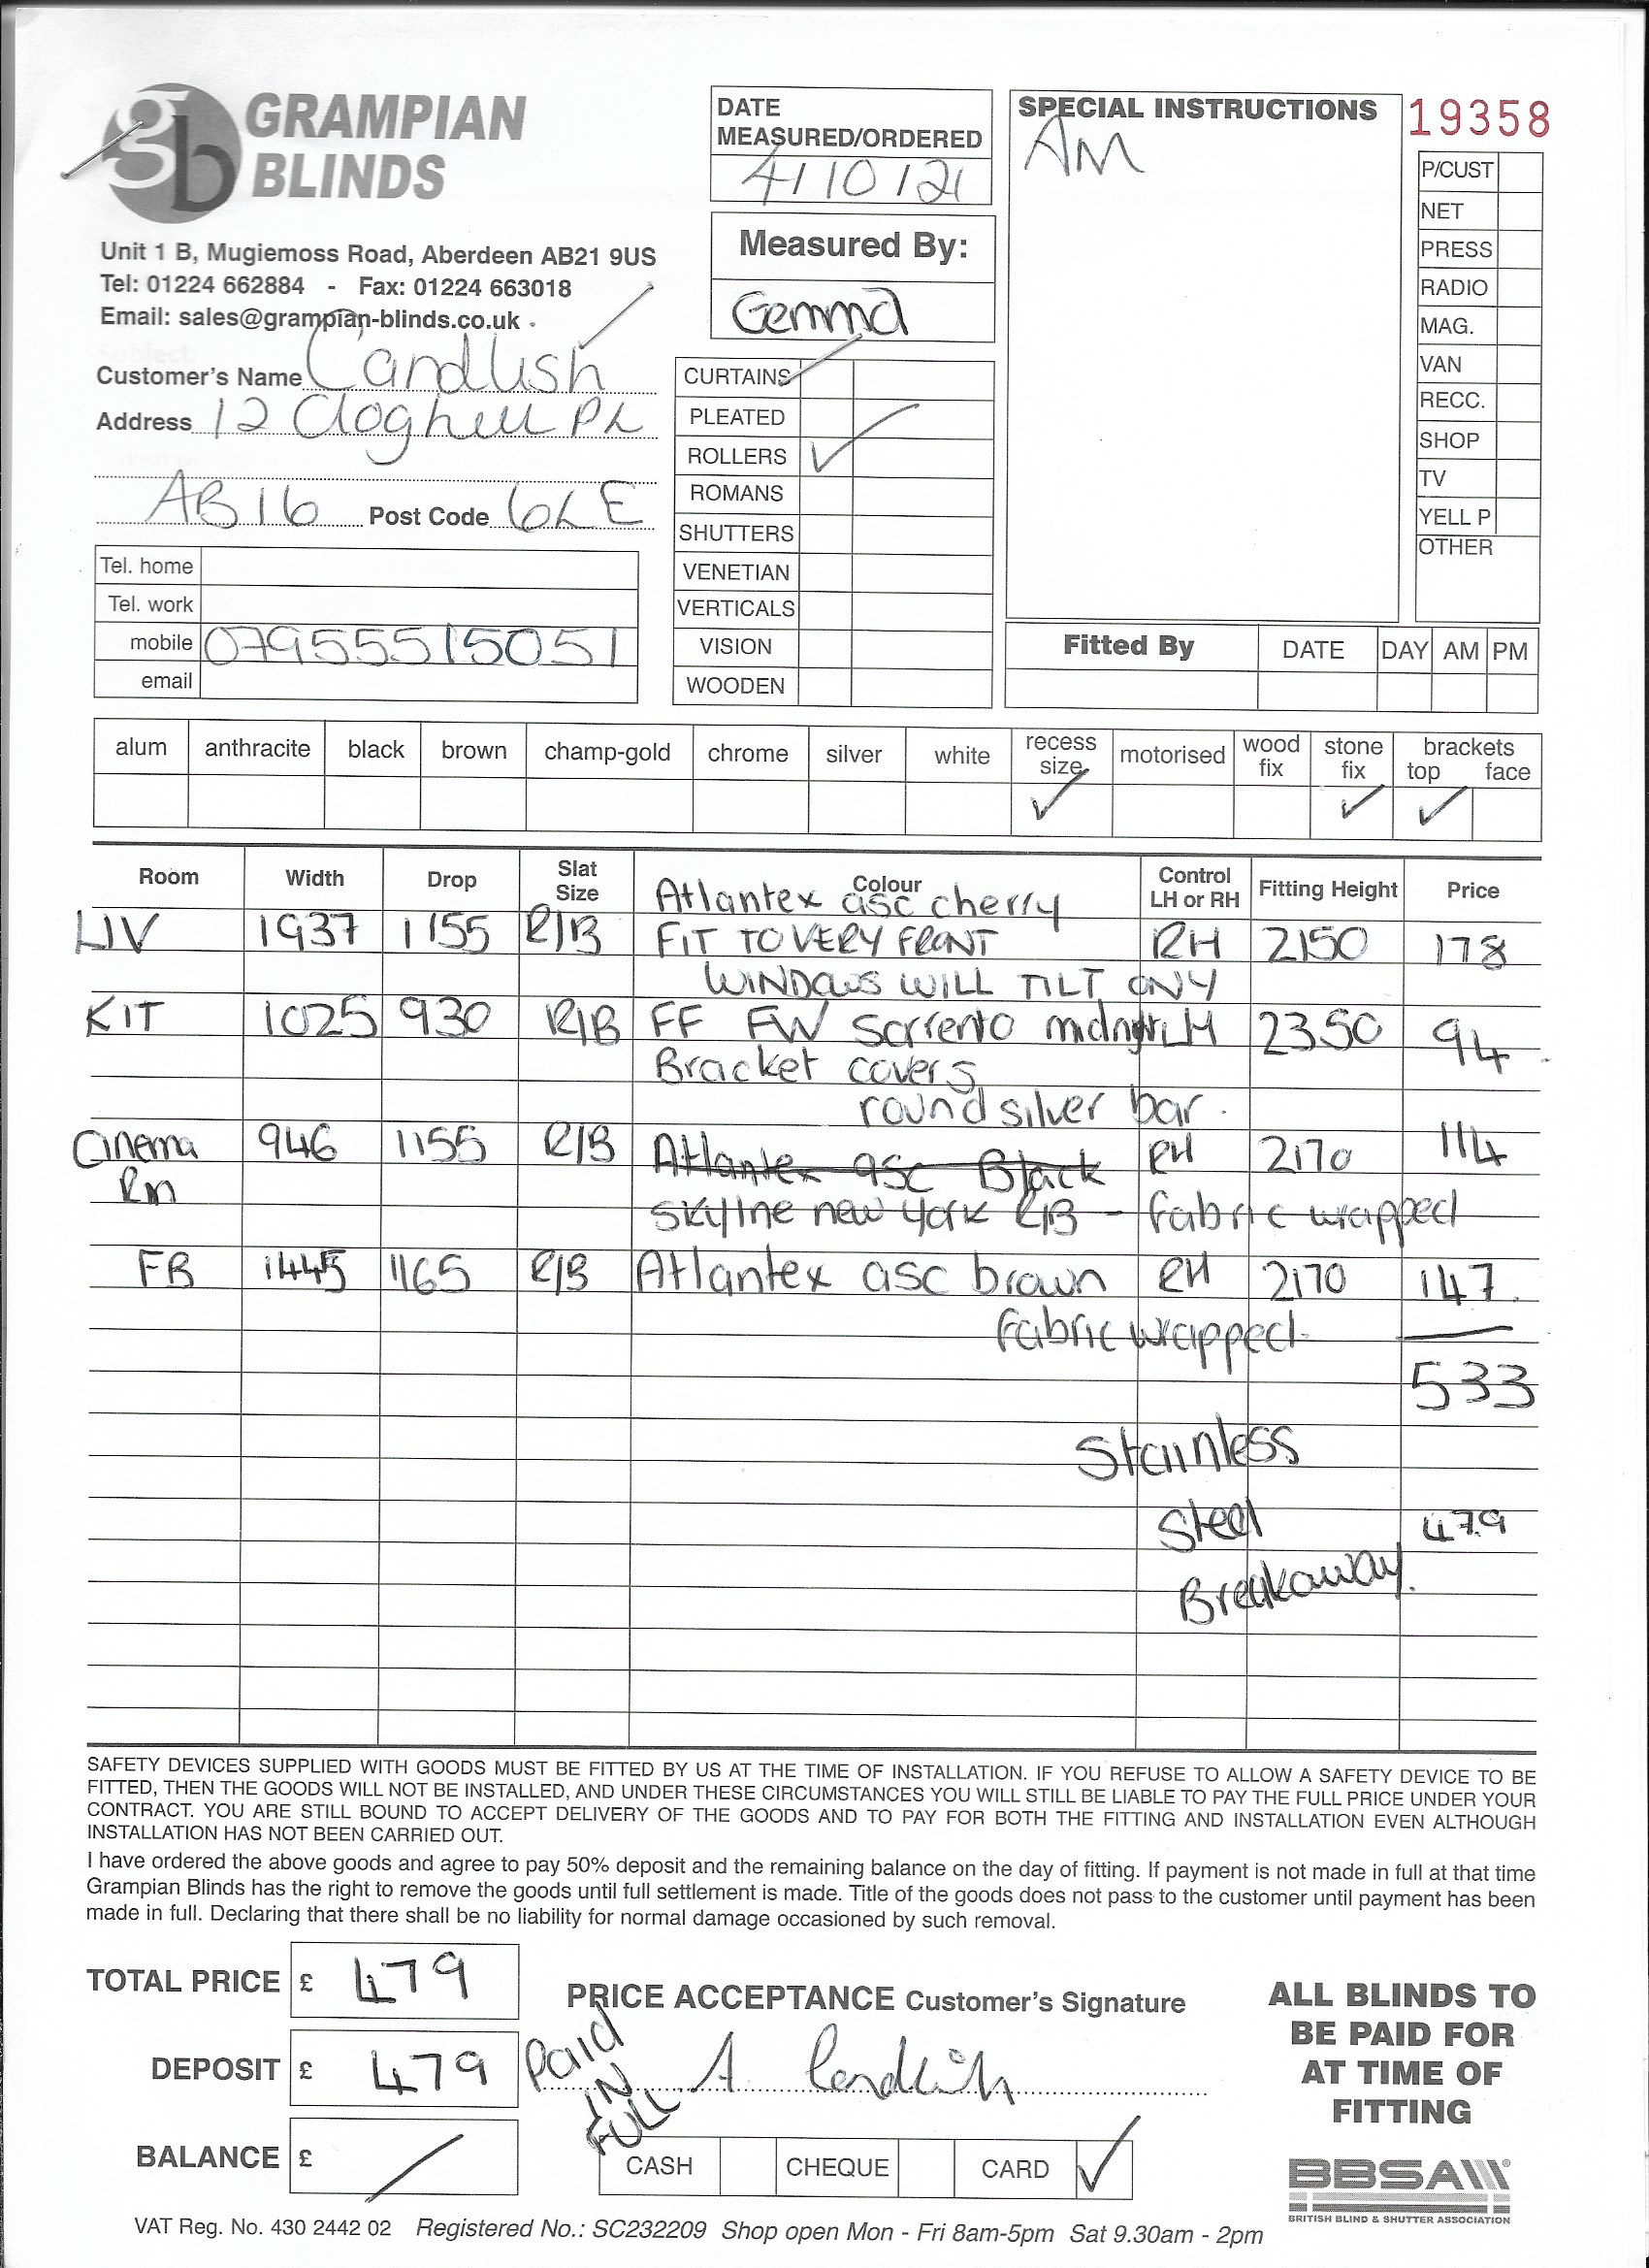 gb GRAMPIAN
BLINDS
Unit 1 B, Mugiemoss Road, Aberdeen AB21 9US
Tel: 01224 662884 - Fax: 01224 663018
Email: sales@grampian-blinds.co.uk
Customer's Name Candlish
Address 12 Cloghill PL
AB16 Post Code 6LE
Tel. home
Tel. work
mobile 07955515051
email
DATE
MEASURED/ORDERED
4/10/21
Measured By:
Gemma
CURTAINS
PLEATED
ROLLERS ✓
ROMANS
SHUTTERS
VENETIAN
VERTICALS
VISION
WOODEN
SPECIAL INSTRUCTIONS
AM
19358
P/CUST
NET
PRESS
RADIO
MAG.
VAN
RECC.
SHOP
TV
YELL P
OTHER
Fitted By DATE DAY AM PM
alum anthracite black brown champ-gold chrome silver white recess size motorised wood fix stone fix brackets top face
✓ ✓ ✓
Room Width Drop Slat Size Colour Control LH or RH Fitting Height Price
Atlantex asc cherry
LIV 1937 1155 R/B FIT TO VERY FRONT RH 2150 178
WINDOWS WILL TILT ONLY
KIT 1025 930 R/B FF FW Sorrento midnight LH 2350 94
Bracket covers
round silver bar.
Cinema 946 1155 R/B Atlantex asc Black RH 2170 114
Rm skyline new york R/B - fabric wrapped
FB 1445 1165 R/B Atlantex asc brown RH 2170 147.
fabric wrapped
533
Stainless
Steel 479
Breakaway.
SAFETY DEVICES SUPPLIED WITH GOODS MUST BE FITTED BY US AT THE TIME OF INSTALLATION. IF YOU REFUSE TO ALLOW A SAFETY DEVICE TO BE
FITTED, THEN THE GOODS WILL NOT BE INSTALLED, AND UNDER THESE CIRCUMSTANCES YOU WILL STILL BE LIABLE TO PAY THE FULL PRICE UNDER YOUR
CONTRACT. YOU ARE STILL BOUND TO ACCEPT DELIVERY OF THE GOODS AND TO PAY FOR BOTH THE FITTING AND INSTALLATION EVEN ALTHOUGH
INSTALLATION HAS NOT BEEN CARRIED OUT.
I have ordered the above goods and agree to pay 50% deposit and the remaining balance on the day of fitting. If payment is not made in full at that time
Grampian Blinds has the right to remove the goods until full settlement is made. Title of the goods does not pass to the customer until payment has been
made in full. Declaring that there shall be no liability for normal damage occasioned by such removal.
TOTAL PRICE £ 479
DEPOSIT £ 479
BALANCE £ /
PRICE ACCEPTANCE Customer's Signature
Paid
IN
FULL
A Candlish
CASH CHEQUE CARD ✓
ALL BLINDS TO
BE PAID FOR
AT TIME OF
FITTING
BBSA
BRITISH BLIND & SHUTTER ASSOCIATION
VAT Reg. No. 430 2442 02 Registered No.: SC232209 Shop open Mon - Fri 8am-5pm Sat 9.30am - 2pm